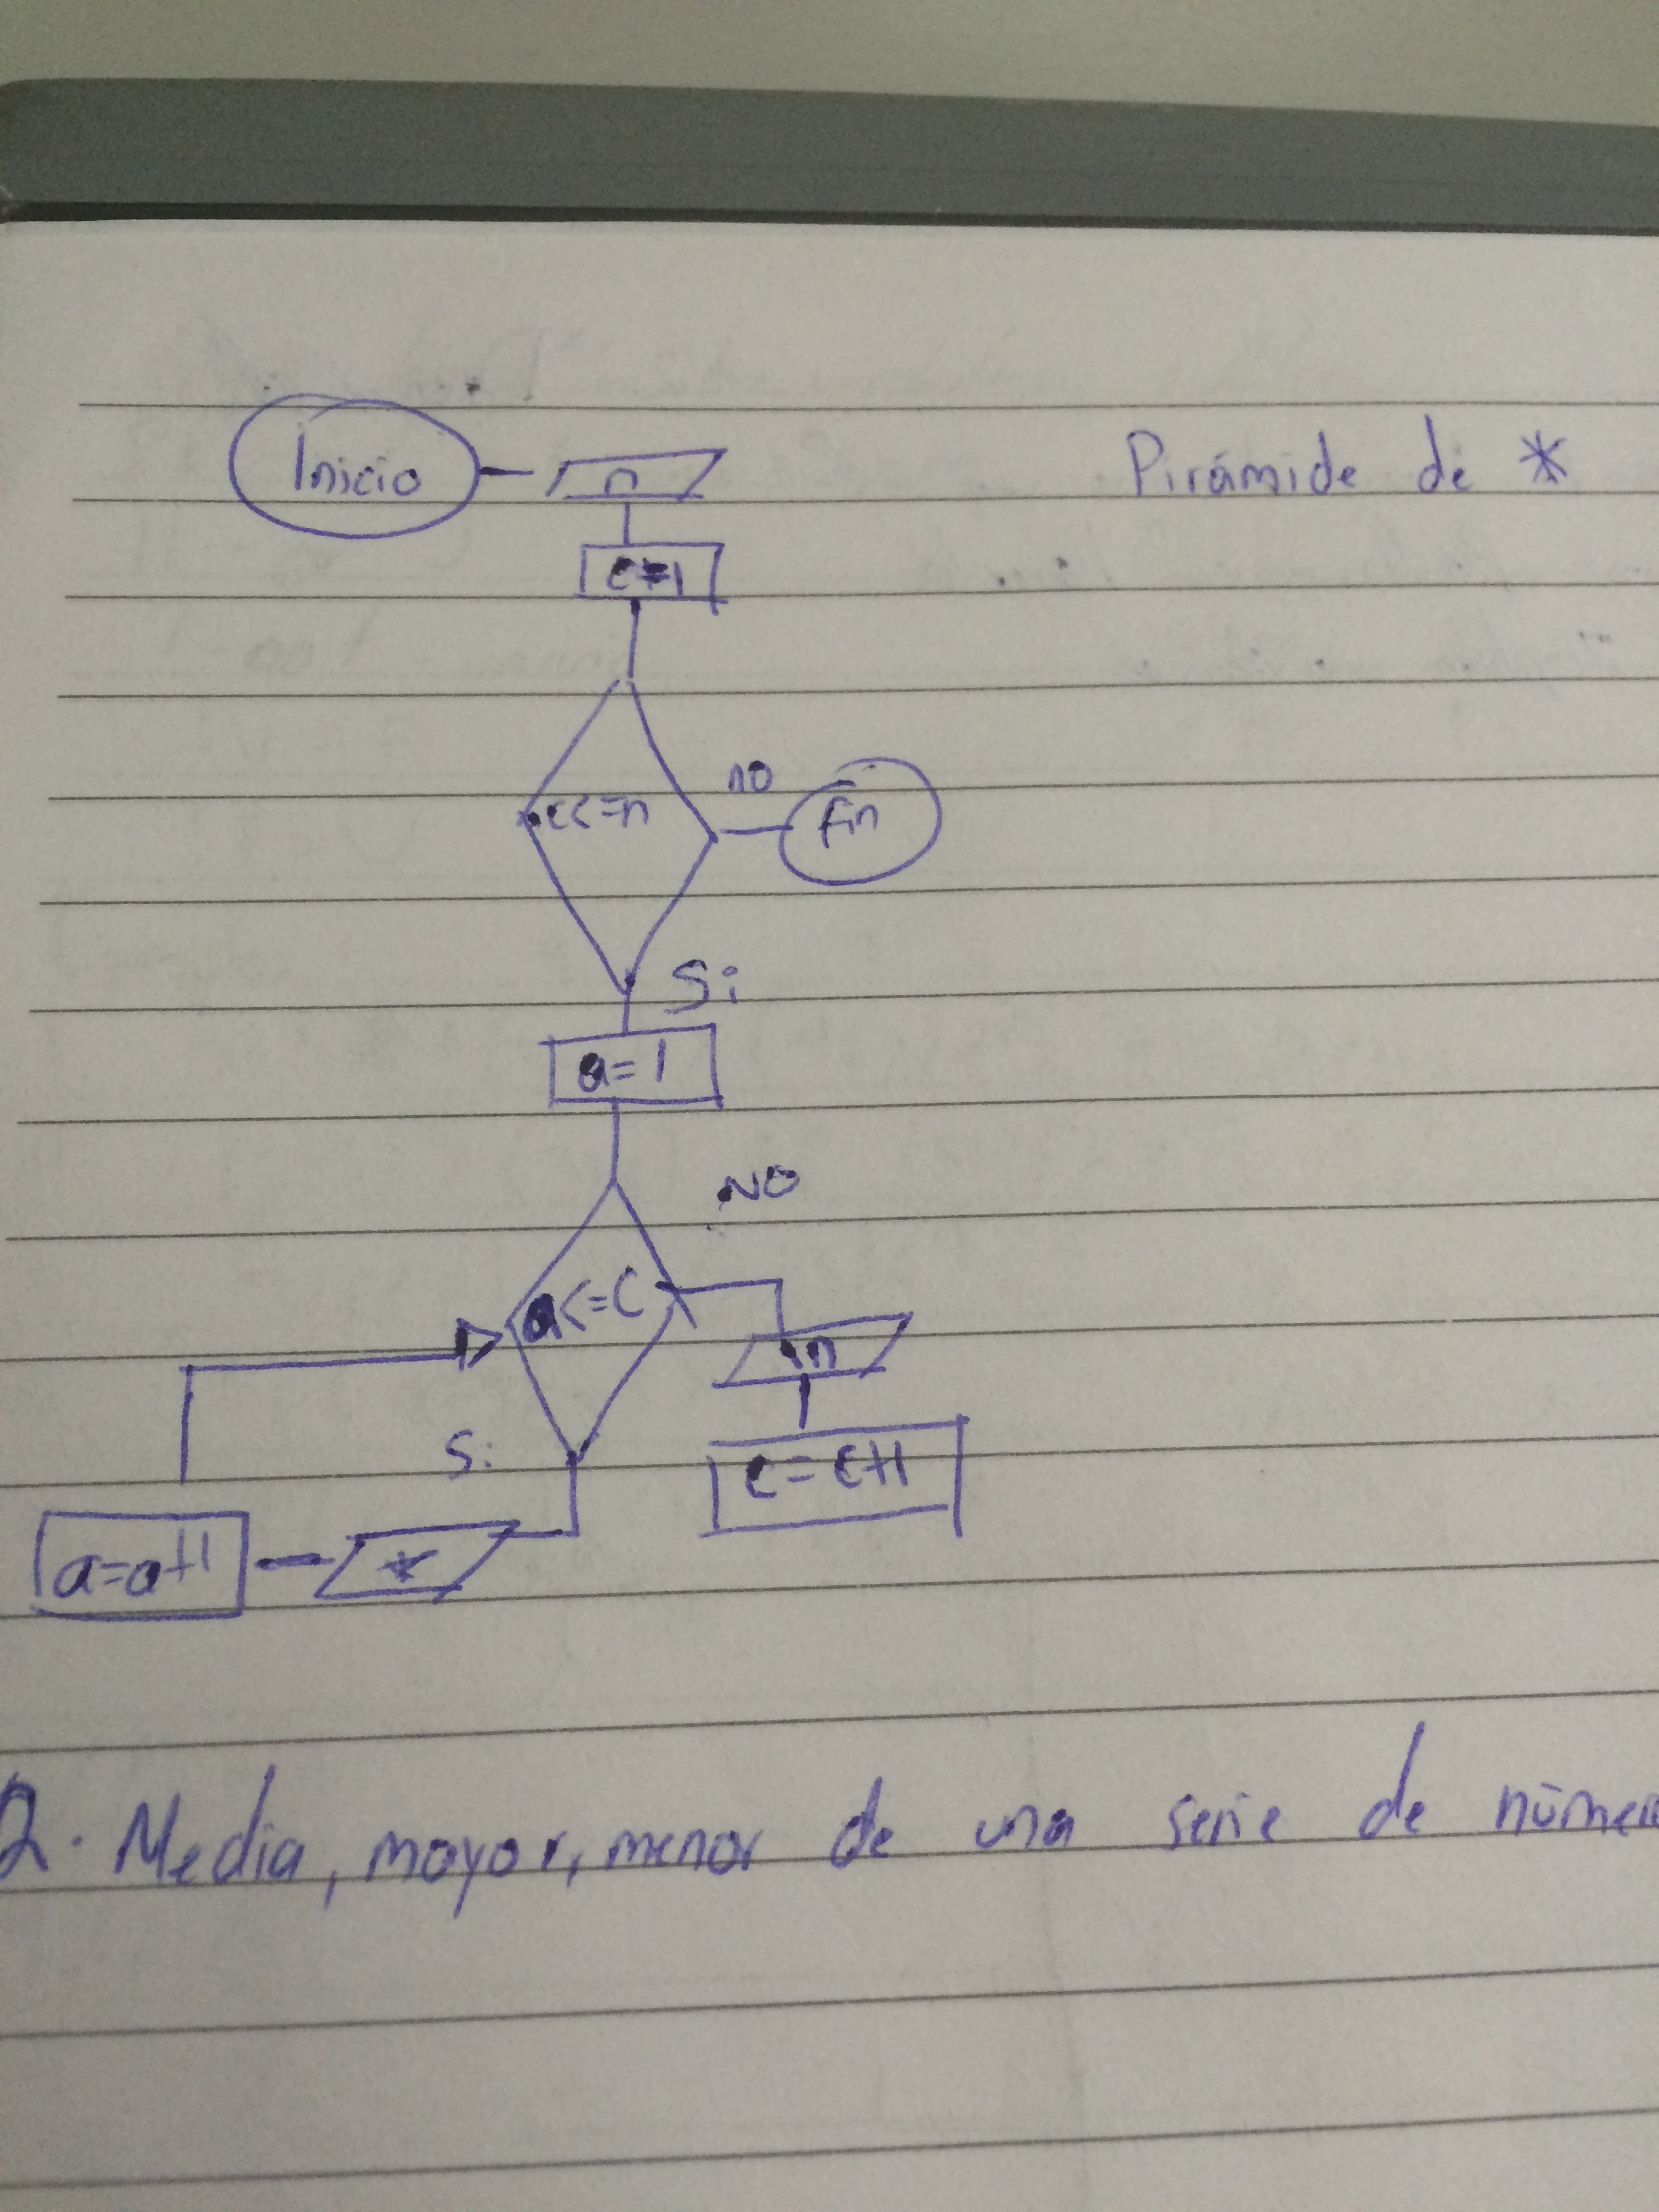 Inicio
n
Pirámide de *
c=1
c<=n
no
Fin
Si
a=1
NO
a<=C
\n
Si
c=c+1
a=a+1
*
2. Media, mayor, menor de una serie de númer